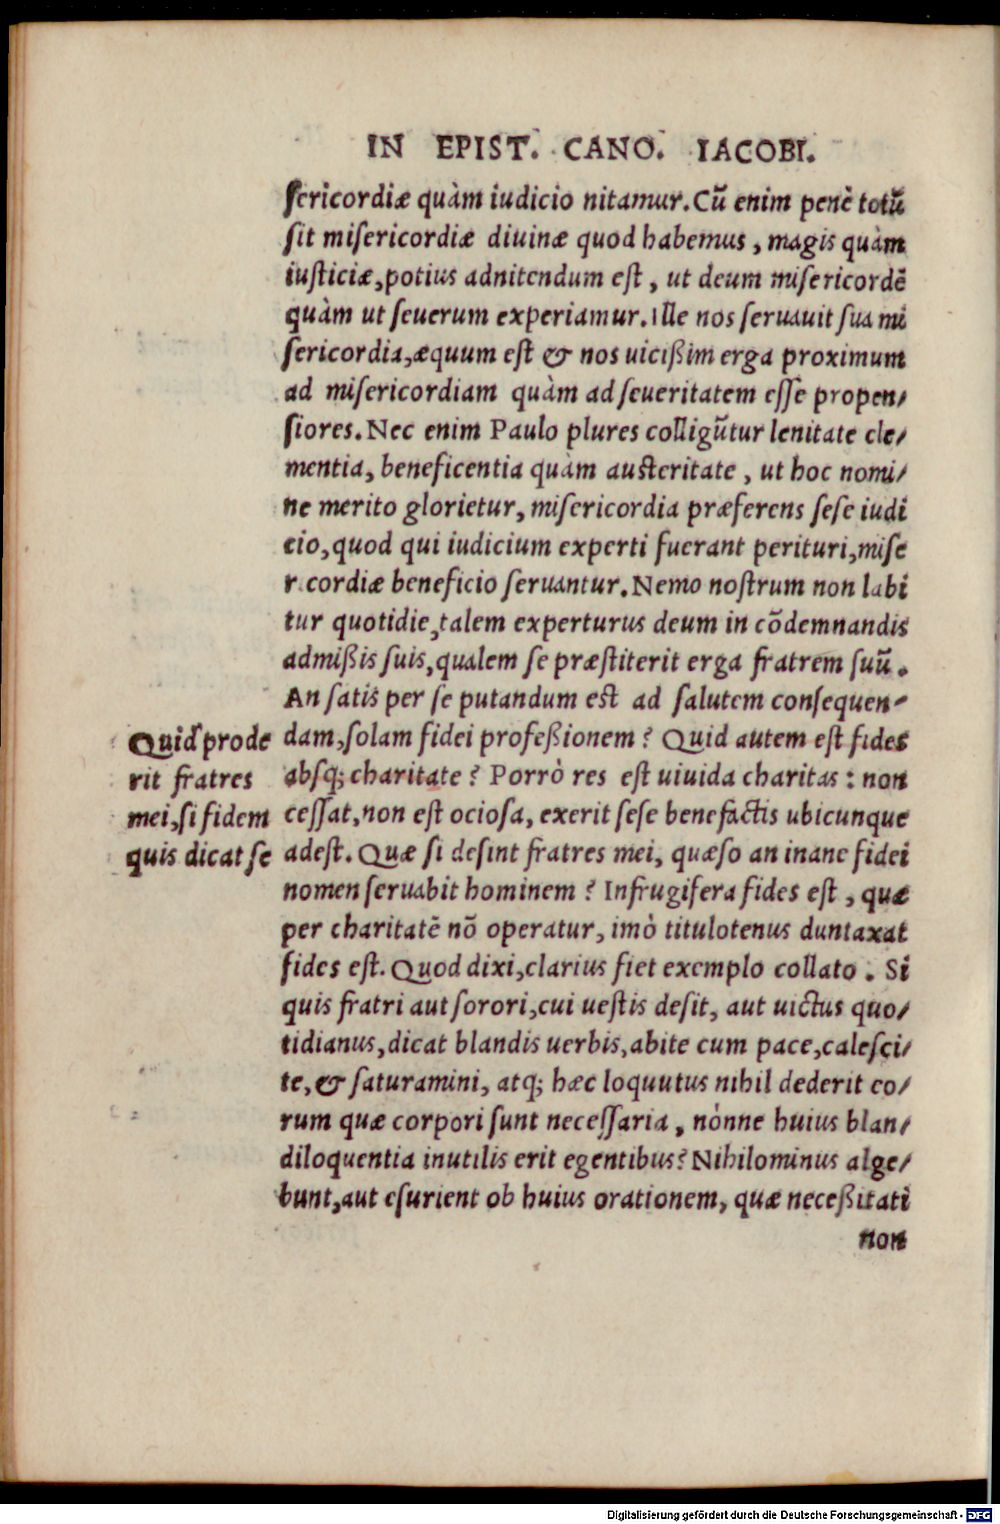 IN EPIST. CANO. IACOBI.
sericordiæ quàm iudicio nitamur. Cũ enim penè totũ
sit misericordiæ diuinæ quod habemus, magis quàm
iusticiæ, potius adnitendum est, ut deum misericordē
quàm ut seuerum experiamur. Ille nos seruauit sua mi
sericordia, æquum est & nos uicißim erga proximum
ad misericordiam quàm ad seueritatem esse propen/
siores. Nec enim Paulo plures colligũtur lenitate cle/
mentia, beneficentia quàm austeritate, ut hoc nomi/
ne merito glorietur, misericordia præferens sese iudi
cio, quod qui iudicium experti fuerant perituri, mise
r cordiæ beneficio seruantur. Nemo nostrum non labi
tur quotidie, talem experturus deum in cōdemnandis
admißis suis, qualem se præstiterit erga fratrem suũ.
An satis per se putandum est ad salutem consequen/
dam, solam fidei profeßionem? Quid autem est fides
absq; charitate? Porrò res est uiuida charitas: non
cessat, non est ociosa, exerit sese benefactis ubicunque
adest. Quæ si desint fratres mei, quæso an inane fidei
nomen seruabit hominem? Infrugifera fides est, quæ
per charitatē nō operatur, imò titulotenus duntaxat
fides est. Quod dixi, clarius fiet exemplo collato. Si
quis fratri aut sorori, cui uestis desit, aut uictus quo/
tidianus, dicat blandis uerbis, abite cum pace, calesci/
te, & saturamini, atq; hæc loquutus nihil dederit eo/
rum quæ corpori sunt necessaria, nónne huius blan/
diloquentia inutilis erit egentibus? Nihilominus alge/
bunt, aut esurient ob huius orationem, quæ neceßitati
non
Quid prode
rit fratres
mei, si fidem
quis dicat se
Digitalisierung gefördert durch die Deutsche Forschungsgemeinschaft - DFG